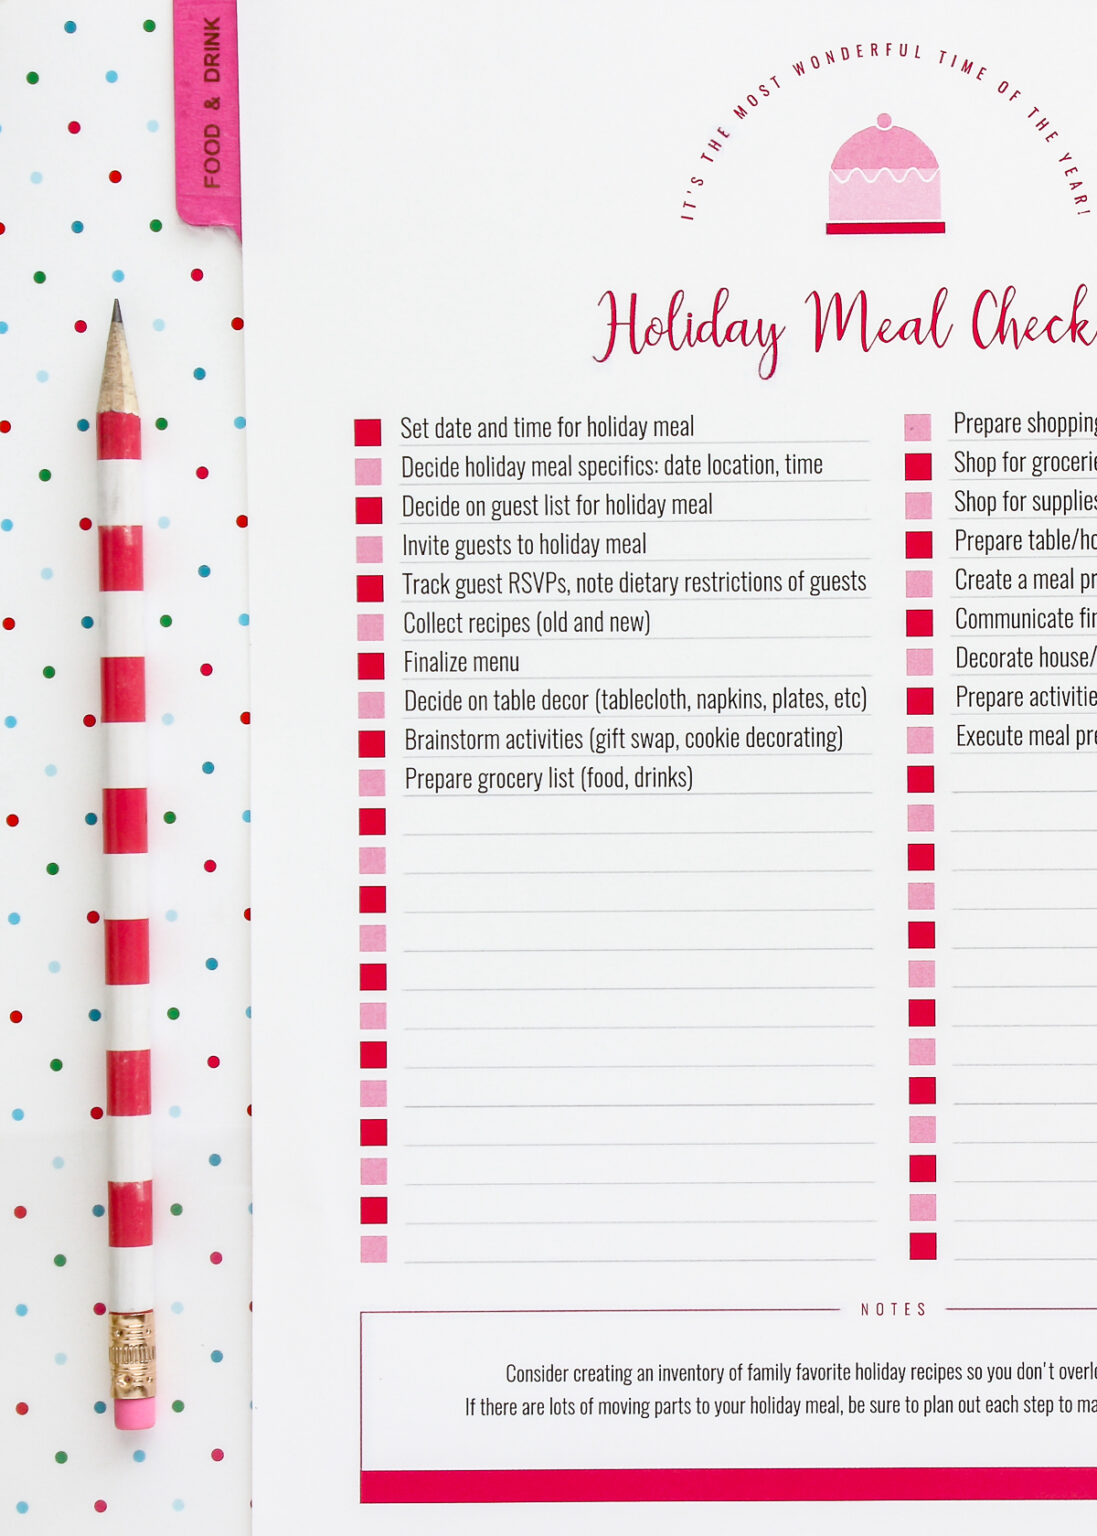 FOOD & DRINK
IT'S THE MOST WONDERFUL TIME OF THE YEAR!
Holiday Meal Check
Set date and time for holiday meal
Decide holiday meal specifics: date location, time
Decide on guest list for holiday meal
Invite guests to holiday meal
Track guest RSVPs, note dietary restrictions of guests
Collect recipes (old and new)
Finalize menu
Decide on table decor (tablecloth, napkins, plates, etc)
Brainstorm activities (gift swap, cookie decorating)
Prepare grocery list (food, drinks)
Prepare shopping
Shop for
Shop for supplies
Prepare
Create a meal
Communicate
Decorate house/
Prepare
Execute meal
NOTES
Consider creating an inventory of family favorite holiday recipes so you don't
If there are lots of moving parts to your holiday meal, be sure to plan out each step to